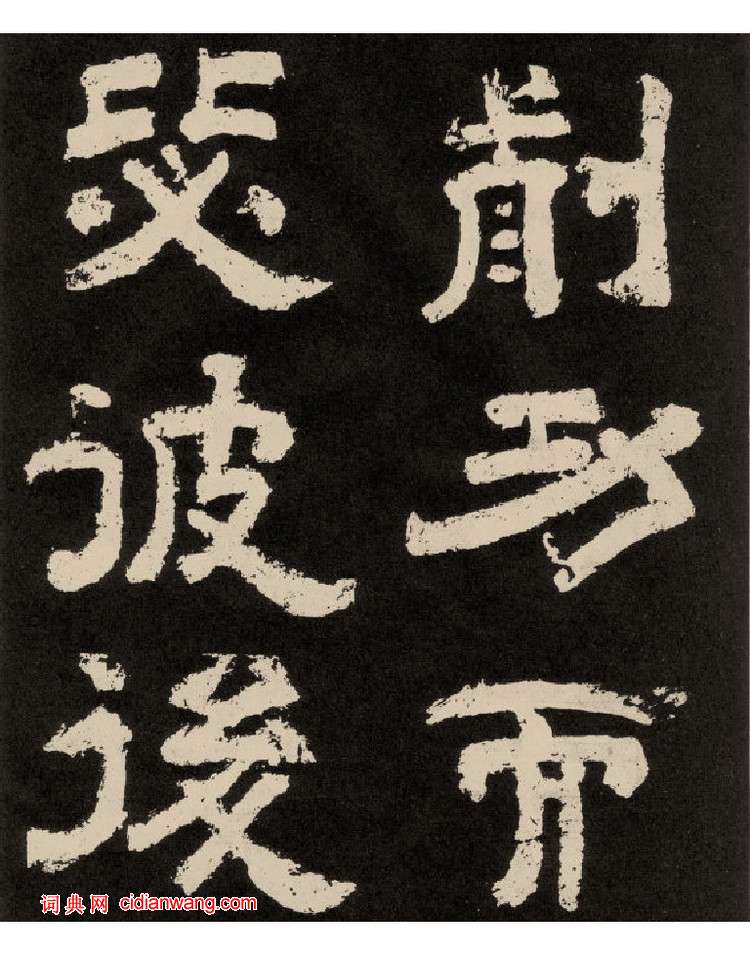 前功而
彼後
词典网 cidianwang.com